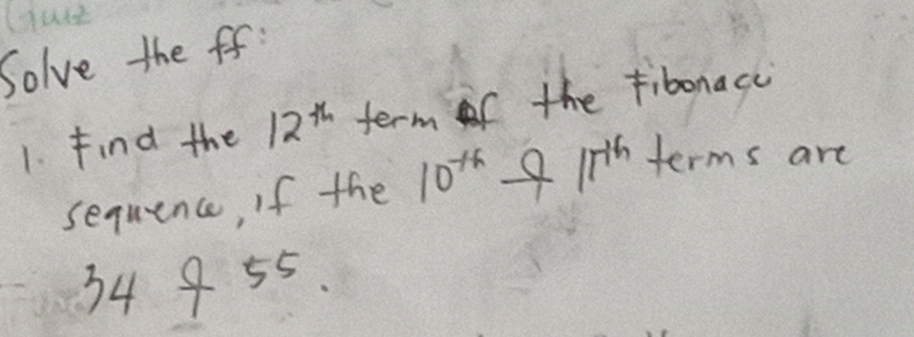 Quiz
Solve the ff:
1. Find the 12th term of the Fibonacci
sequence, if the 10th & 11th terms are
34 & 55.